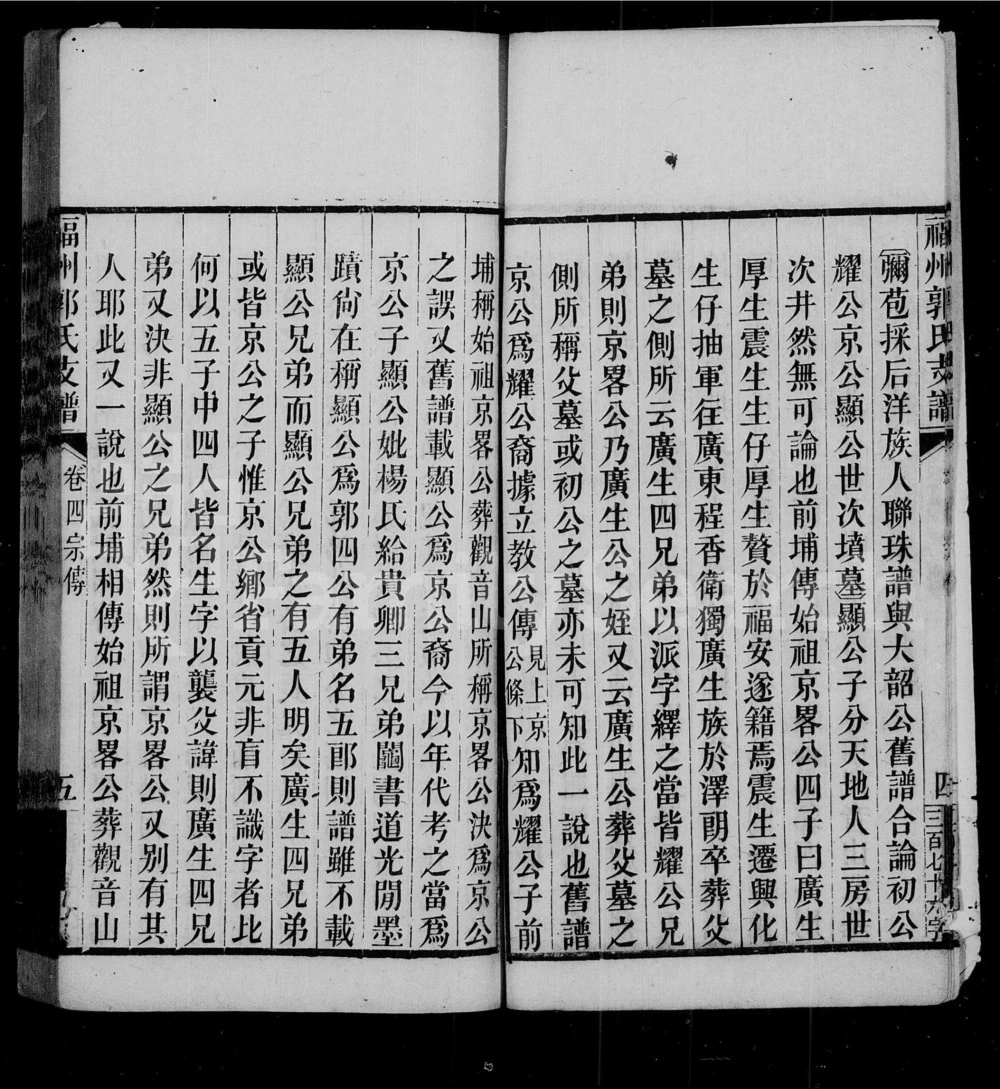 福州郭氏支譜
四
三百七十九字
彌苞採后洋族人聯珠譜與大韶公舊譜合論初公
耀公京公顯公世次墳墓顯公子分天地人三房世
次井然無可論也前埔傳始祖京畧公四子曰廣生
厚生震生生仔厚生贅於福安遂籍焉震生遷興化
生仔抽軍往廣東程香衛獨廣生族於澤朗卒葬父
墓之側所云廣生四兄弟以派字繹之當皆耀公兄
弟則京畧公乃廣生公之姪又云廣生公葬父墓之
側所稱父墓或初公之墓亦未可知此一說也舊譜
京公爲耀公裔據立教公傳見上京公條下知爲耀公子前
埔稱始祖京畧公葬觀音山所稱京畧公決爲京公
之誤又舊譜載顯公爲京公裔今以年代考之當爲
京公子顯公妣楊氏給貴卿三兄弟鬮書道光閒墨
蹟尙在稱顯公爲郭四公有弟名五郎則譜雖不載
顯公兄弟而顯公兄弟之有五人明矣廣生四兄弟
或皆京公之子惟京公鄉省貢元非盲不識字者比
何以五子中四人皆名生字以襲父諱則廣生四兄
弟又決非顯公之兄弟然則所謂京畧公又別有其
人耶此又一說也前埔相傳始祖京畧公葬觀音山
福州郭氏支譜
卷四宗傳
五